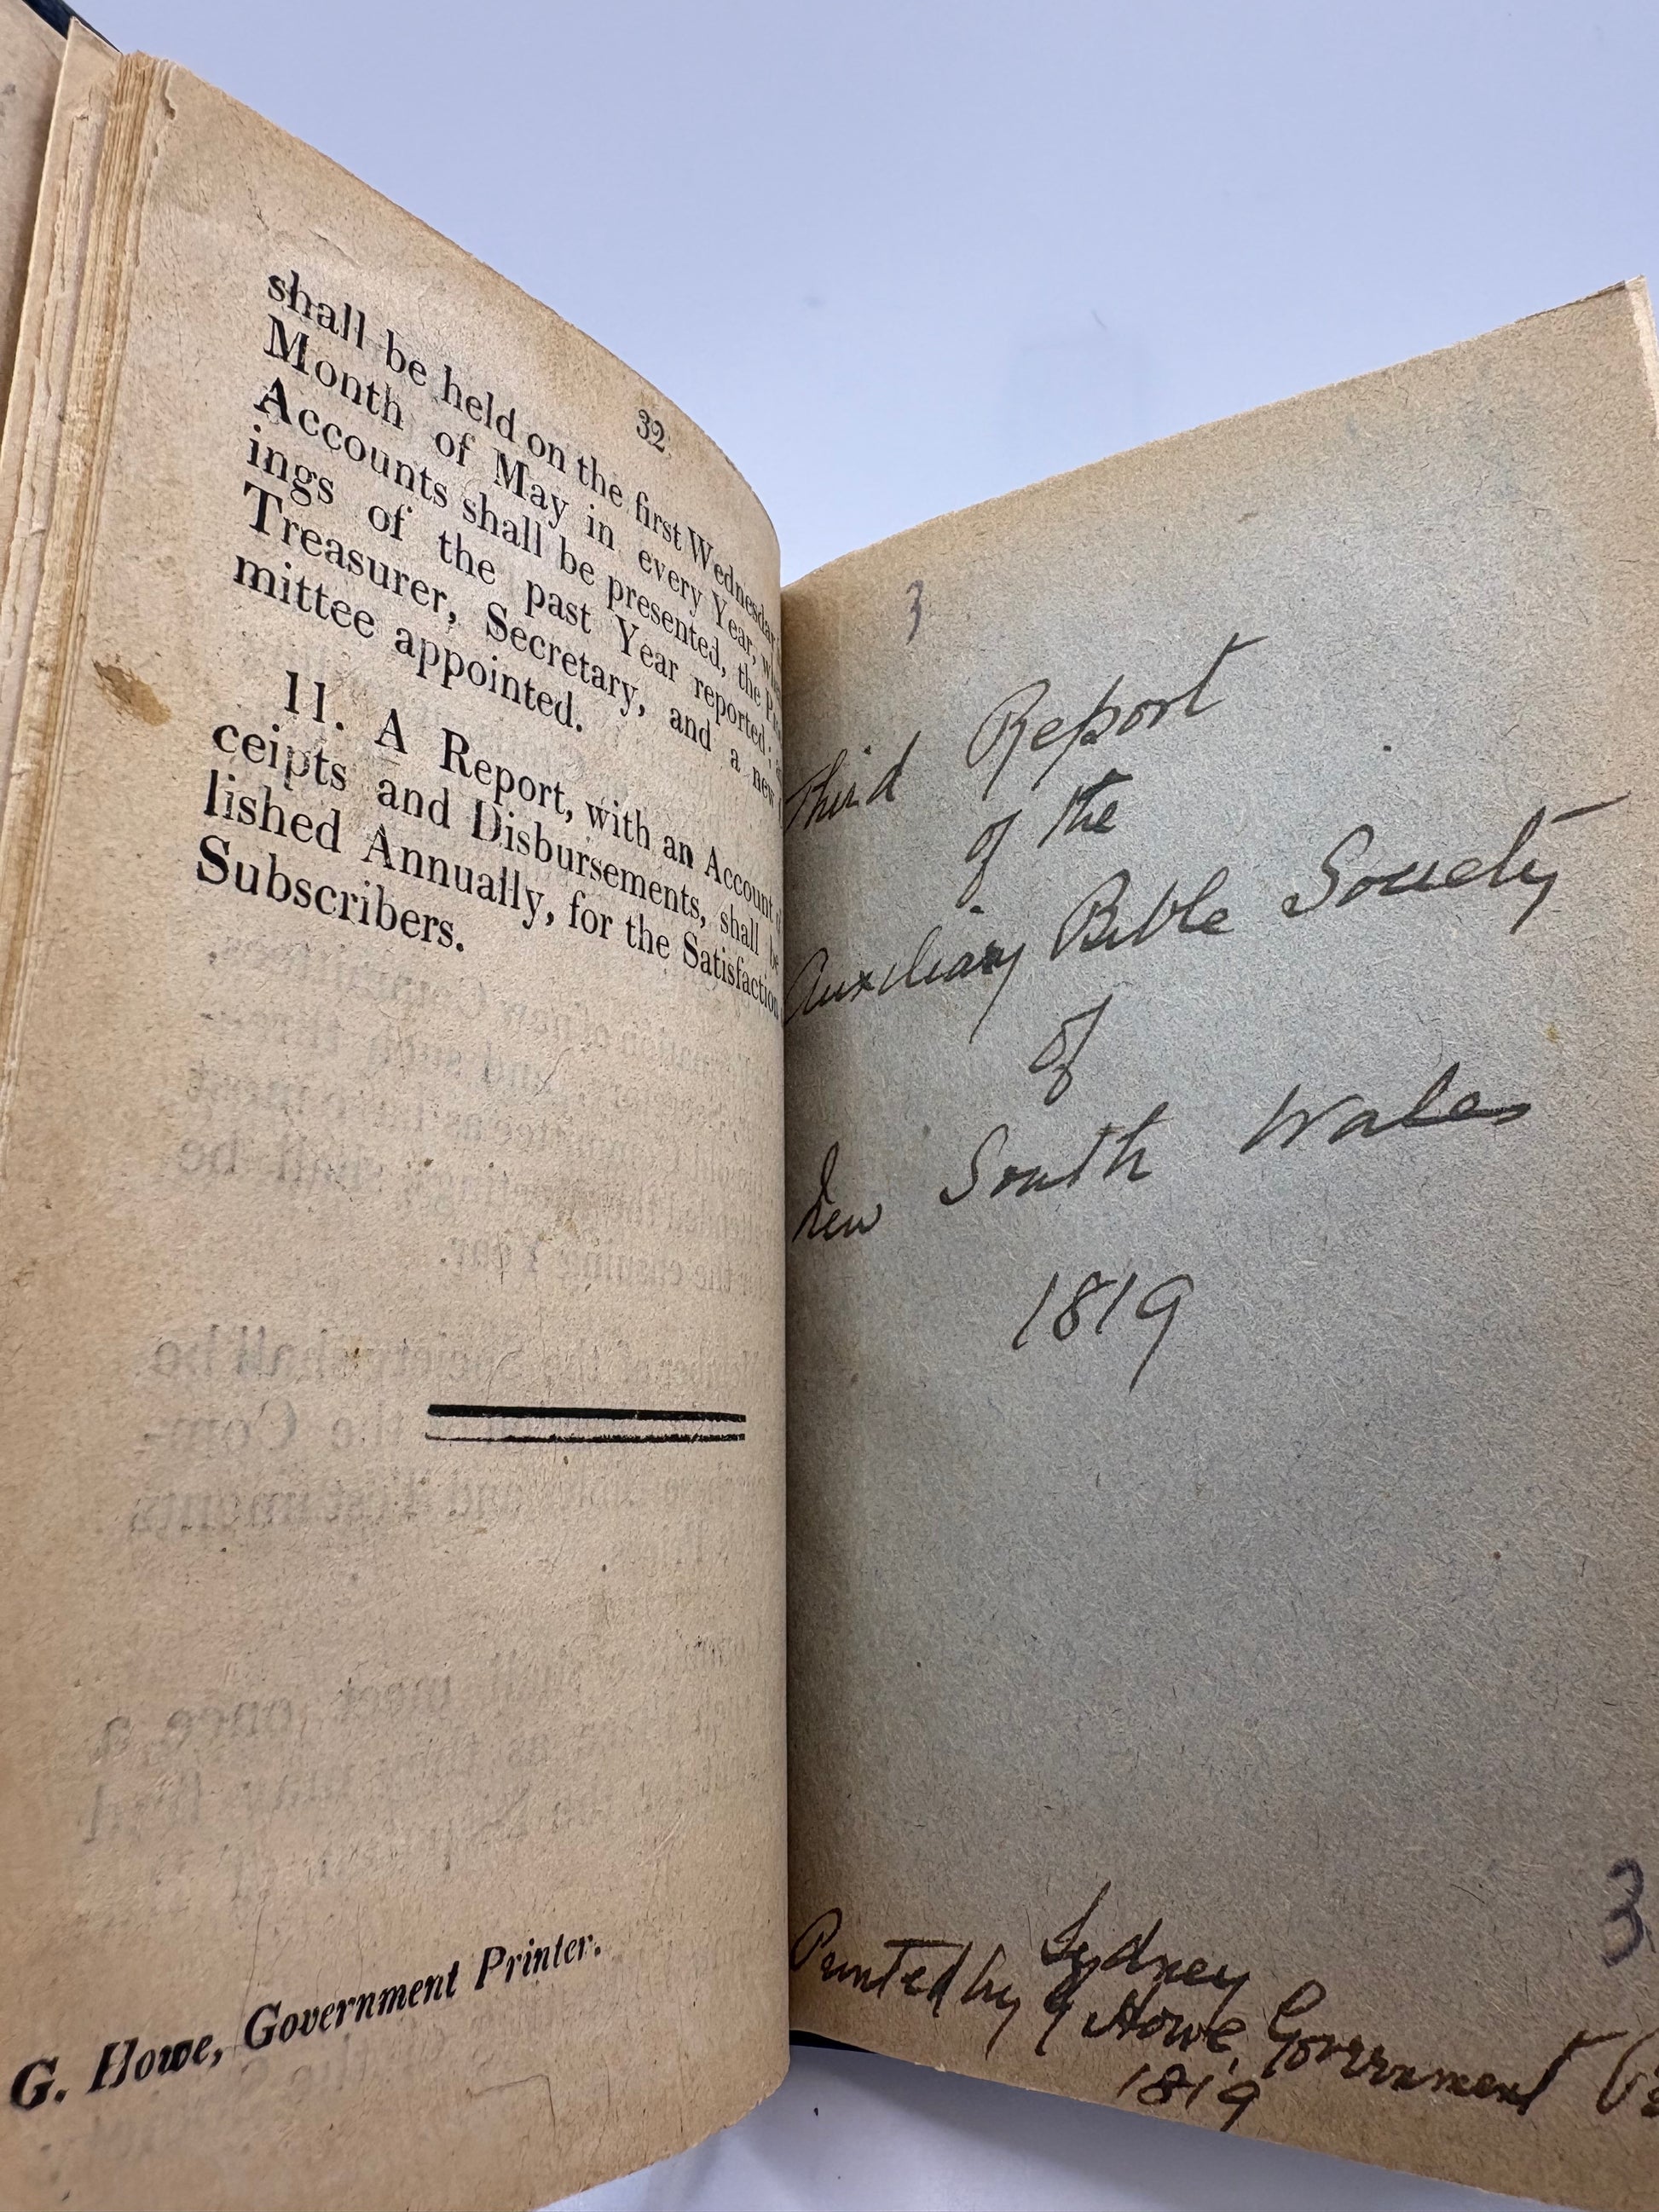 32
shall be held on the first Wednesday
Month of May in every Year,
Accounts shall be presented, the
ings of the past Year reported;
Treasurer, Secretary, and a new
mittee appointed.
11. A Report, with an Account
ceipts and Disbursements, shall be
lished Annually, for the Satisfaction
Subscribers.
G. Howe, Government Printer.
3
Third Report
of the
Auxiliary Bible Society
of
New South Wales
1819
3
Sydney
Printed by G Howe, Government
1819